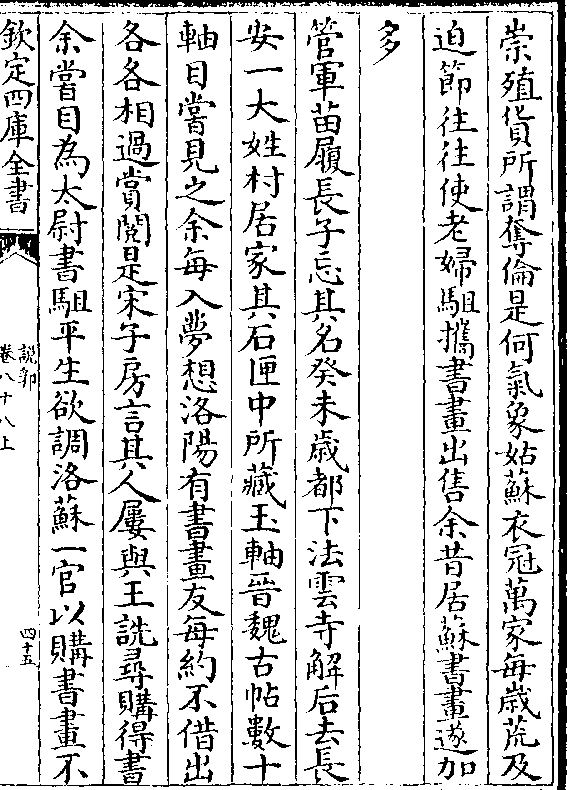 崇殖貨所謂奪倫是何氣象姑蘇衣冠萬家每歲荒及
迫節往往使老婦駔攜書畫出售余昔居蘇書畫遂加
多
管軍苗履長子忘其名癸未歲都下法雲寺解后去長
安一大姓村居家其石匣中所藏玉軸晉魏古帖數十
軸目嘗見之余每入夢想洛陽有書畫友每約不借出
各各相過賞閱是宋子房言其人屢與王詵尋購得書
余嘗目為太尉書駔平生欲調洛蘇一官以購書畫不
欽定四庫全書
說郛
卷八十八上
四十五